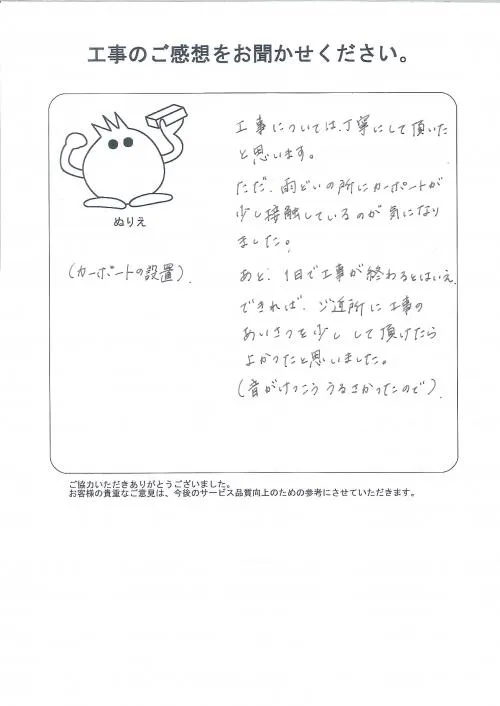 工事のご感想をお聞かせください。
ぬりえ
(カーポートの設置).
工事については、丁寧にして頂いた
と思います。
ただ、雨どいの所にカーポートが
少し接触しているのが気になり
ました。
あと、1日で工事が終わるとはいえ、
できれば、ご近所に工事の
あいさつを少し して頂けたら
よかったと思いました。
(音がけっこう うるさかったので).
ご協力いただきありがとうございました。
お客様の貴重なご意見は、今後のサービス品質向上のための参考にさせていただきます。